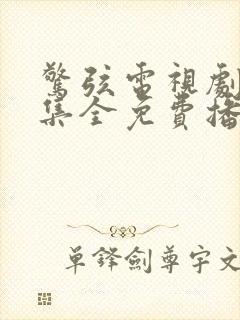 驚弦電視劇
集全免費播
單鋒劍尊宇文